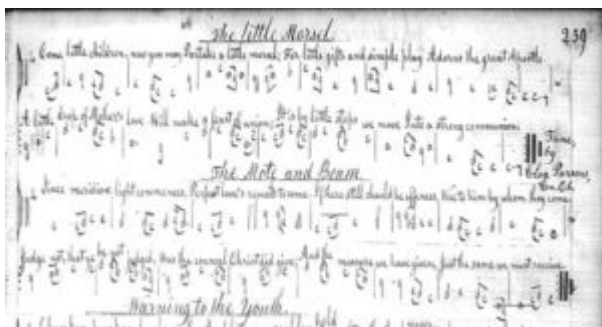 The Little Morsel
239
Come little children, now you may Partake a little morsel; For little gifts and simple play Adorns the great Apostle.
A little drop of Mother's love Will make a feast of union; It is by little steps we move Into a strong communion.
Tune,
by
Parsons,
The Mote and Beam
Since meridian light commences, Perfect love's to come. If there still should be offences, Woe to him by whom they come.
Judge not, that ye be not judged, was the counsel Christ did give; And the measure we have given, Just the same we must receive.
Warning to the Youth.